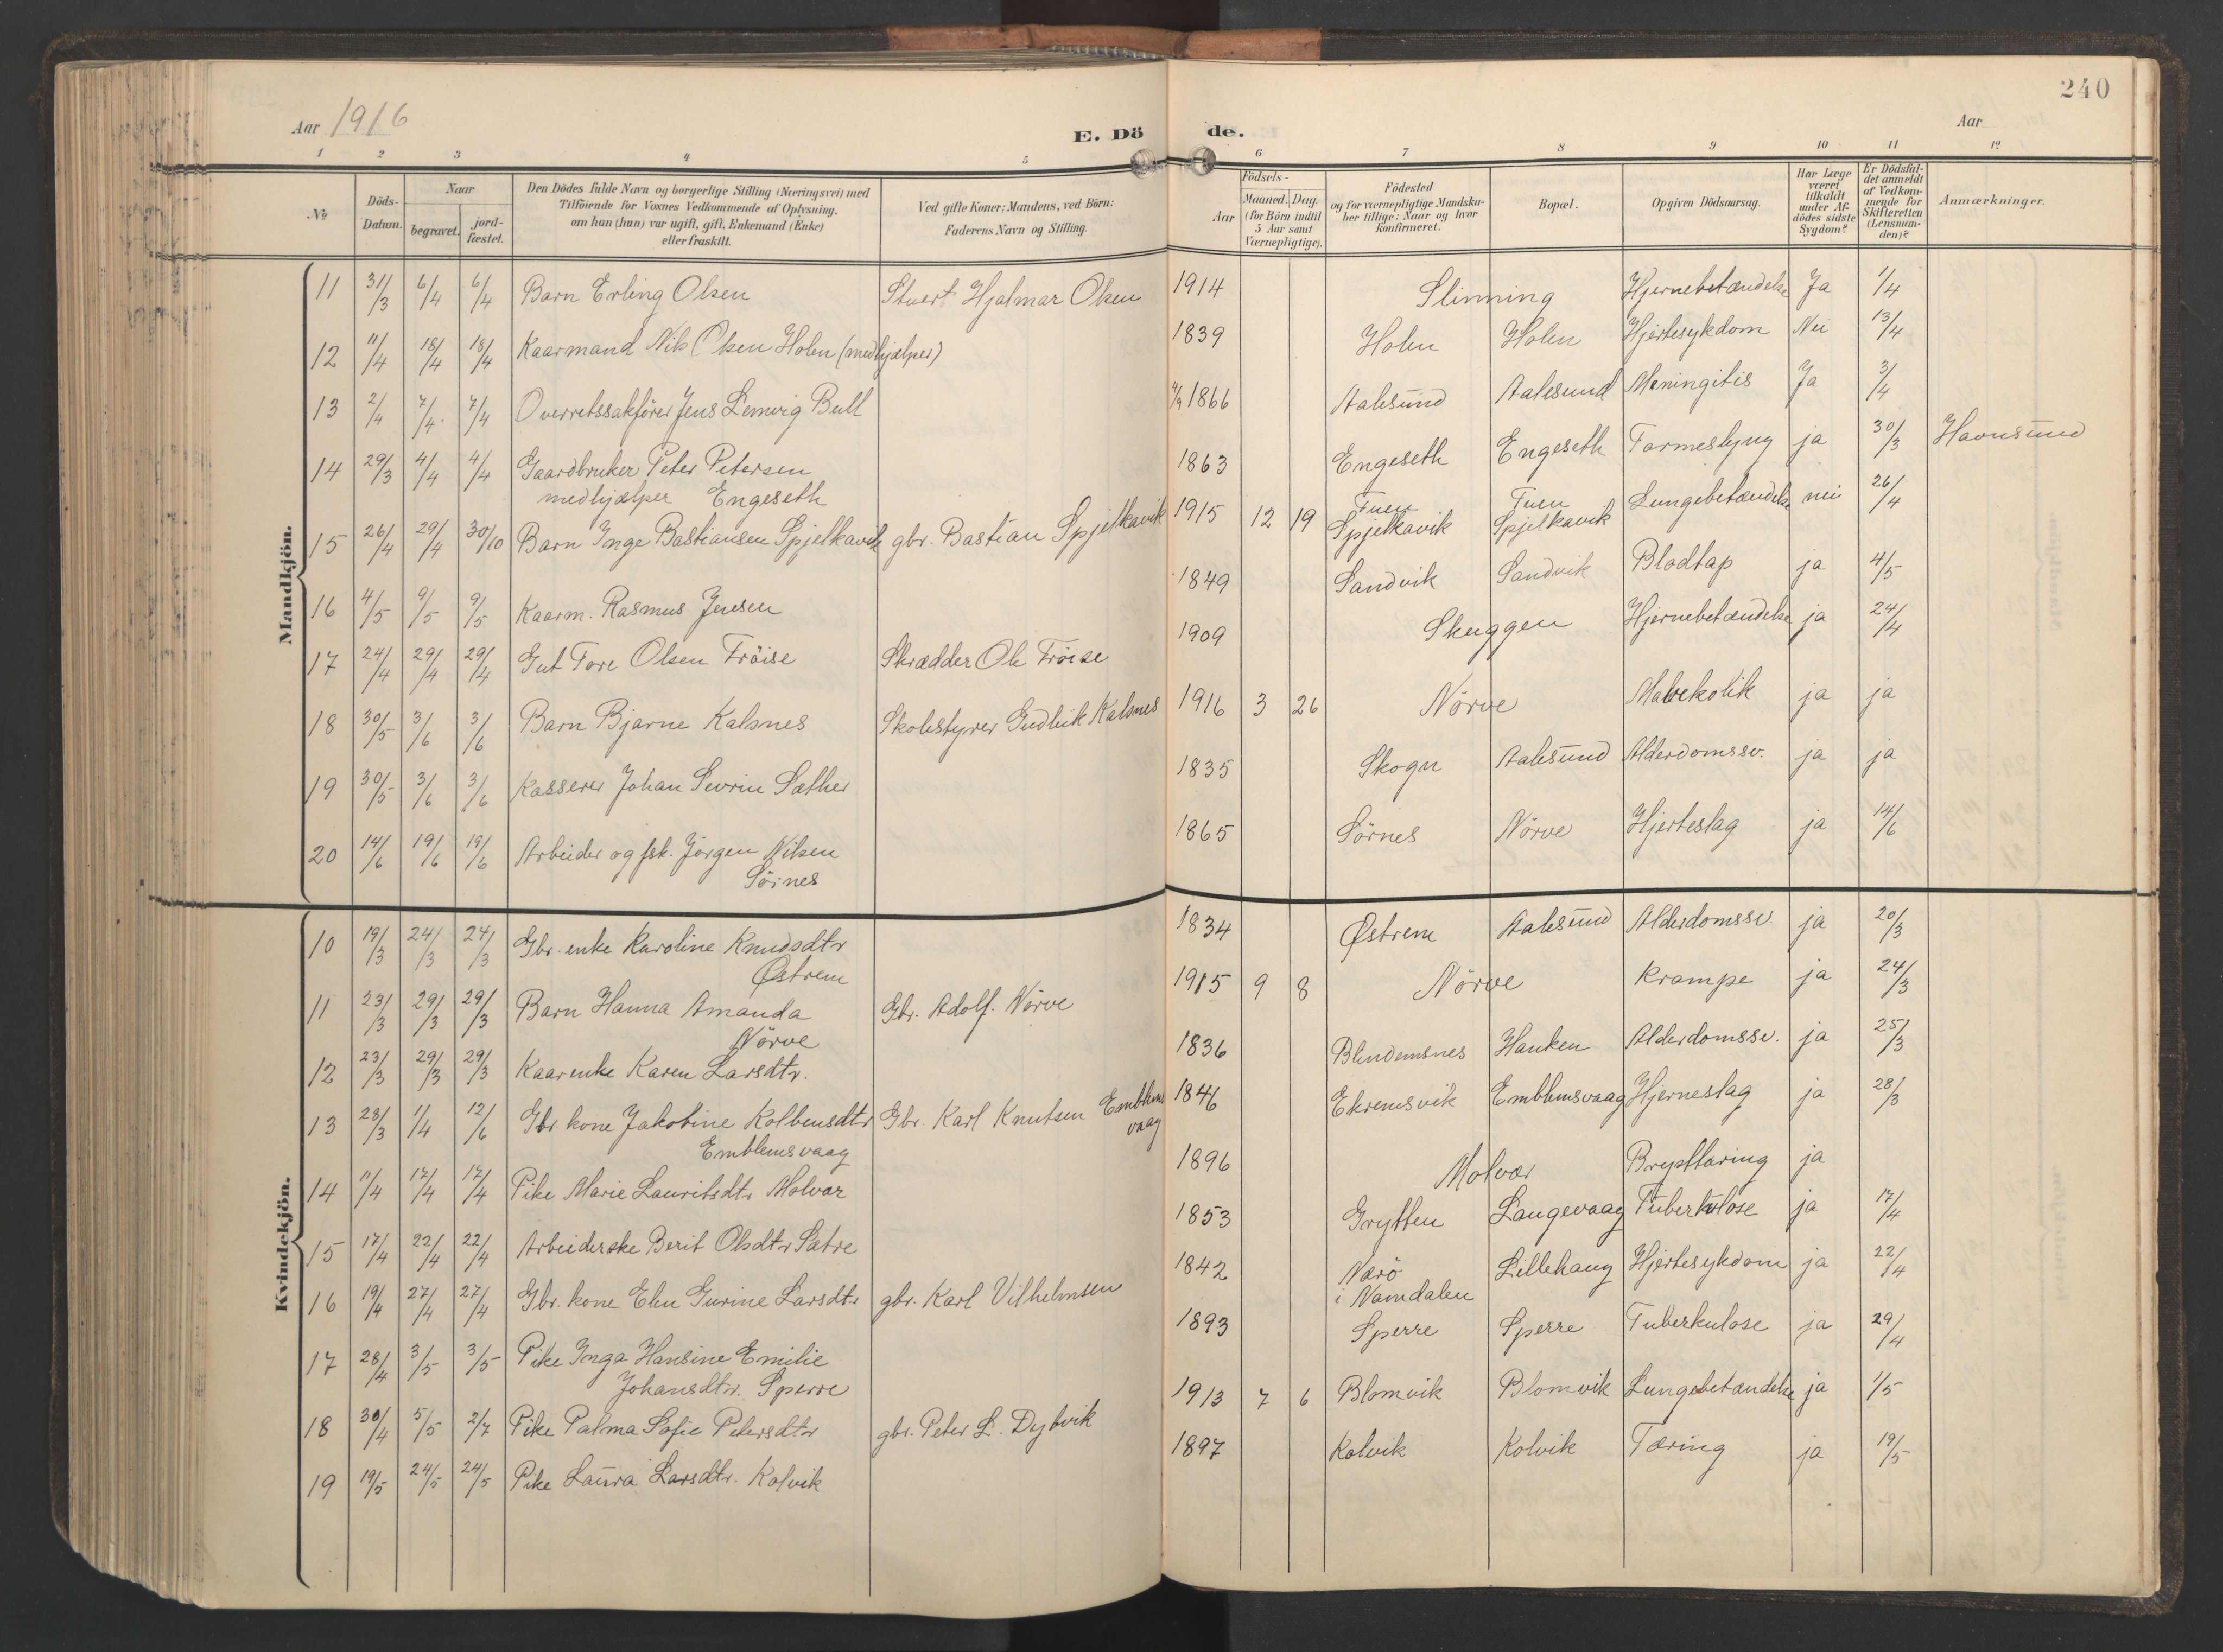 240
Aar 1916
E. Dö de.
Aar
1 2 3 4 5 6 7 8 9 10 11 12
№
Döds-Datum.
Naar
begravet.
jord-fæstet.
Den Dödes fulde Navn og borgerlige Stilling (Næringsvei) med
Tilföiende for Voxnes Vedkommende af Oplysning,
om han (hun) var ugift, gift, Enkemand (Enke)
eller fraskilt.
Ved gifte Koner: Mandens, ved Börn:
Faderens Navn og Stilling.
Födsels-
Aar
Maaned. Dag.
(for Börn indtil
5 Aar samt
Værnepligtige).
Födested
og for værnepligtige Mandska-
ber tillige: Naar og hvor
konfirmeret.
Bopæl.
Opgiven Dödsaarsag.
Har Læge
været
tilkaldt
under Af-
dödes sidste
Sygdom?
Er Dödsfal-
det anmeldt
af Vedkom-
mende for
Skifteretten
(Lensman-
den)?
Anmærkninger.
Mandkjön.
11 31/3 6/4 6/4 Barn Erling Olsen Stuert Hjalmar Olsen 1914 Slinning Hjernebetændelse Ja 1/4
12 11/4 18/4 18/4 Kaarmand Nils Olsen Holen (medhjælper) 1839 Holen Holen Hjertesykdom Nei 13/4
13 2/4 7/4 7/4 Overretssakförer Jens Lemvig Bull 4/9 1866 Aalesund Aalesund Meningitis Ja 3/4
14 29/3 4/4 4/4 Gaardbruker Peter Petersen 1863 Engeseth Engeseth Tarmeslyng ja 30/3 Havnsund
medhjælper Engeseth
15 26/4 29/4 30/10 Barn Inge Bastiansen Spjelkavik gbr. Bastian Spjelkavik 1915 12 19 Tuen Spjelkavik Tuen Spjelkavik Lungebetændelse nei 26/4
16 4/5 9/5 9/5 Kaarm. Rasmus Jensen 1849 Sandvik Sandvik Blodtap ja 4/5
17 24/4 29/4 29/4 Gut Tore Olsen Tröise Skrædder Ole Tröise 1909 Skuggen Hjernebetændelse ja 24/4
18 30/5 3/6 3/6 Barn Bjarne Kalsnes Skolestyrer Gudleik Kalsnes 1916 3 26 Nörve Mavekolik ja ja
19 30/5 3/6 3/6 Kasserer Johan Sevrin Sæther 1835 Skogn Aalesund Alderdomssv. ja ja
20 14/6 19/6 19/6 Arbeider og fsk. Jörgen Nilsen 1865 Sörnes Nörve Hjerteslag ja 14/6
Sörnes
Kvindekjön.
10 19/3 24/3 24/3 Gbr. enke Karoline Knudsdtr 1834 Østrem Aalesund Alderdomssv. ja 20/3
Østrem
11 23/3 29/3 29/3 Barn Hanna Amanda Gbr. Adolf. Nörve 1915 9 8 Nörve Krampe ja 24/3
Nörve
12 23/3 29/3 29/3 Kaarenke Karen Larsdtr. 1836 Blindemsnes Hanken Alderdomssv. ja 25/3
13 28/3 1/4 12/6 Gbr. kone Jakobine Kolbensdtr Gbr. Karl Knutsen Emblemsvaag 1846 Ekremsvik Emblemsvaag Hjerneslag ja 28/3
Emblemsvaag
14 11/4 17/4 17/4 Pike Marie Lauritsdtr Molvær 1896 Molvær Brysttæring ja
15 17/4 22/4 22/4 Arbeiderske Berit Olsdtr Sætre 1853 Grytten Langevaag Tuberkulose ja 17/4
16 19/4 27/4 27/4 Gbr. kone Elen Gurine Larsdtr gbr. Karl Vilhelmsen 1842 Nærö Lillehaug Hjertesykdom ja 22/4
i Namdalen
17 28/4 3/5 3/5 Pike Inga Hansine Emilie 1893 Sperre Sperre Tuberkulose ja 29/4
Johansdtr. Sperre
18 30/4 5/5 2/7 Pike Palma Sofie Petersdtr gbr. Peter L. Dybvik 1913 7 6 Blomvik Blomvik Lungebetændelse ja 1/5
19 19/5 24/5 24/5 Pike Laura Larsdtr. Kolvik 1897 Kolvik Kolvik Tæring ja 19/5